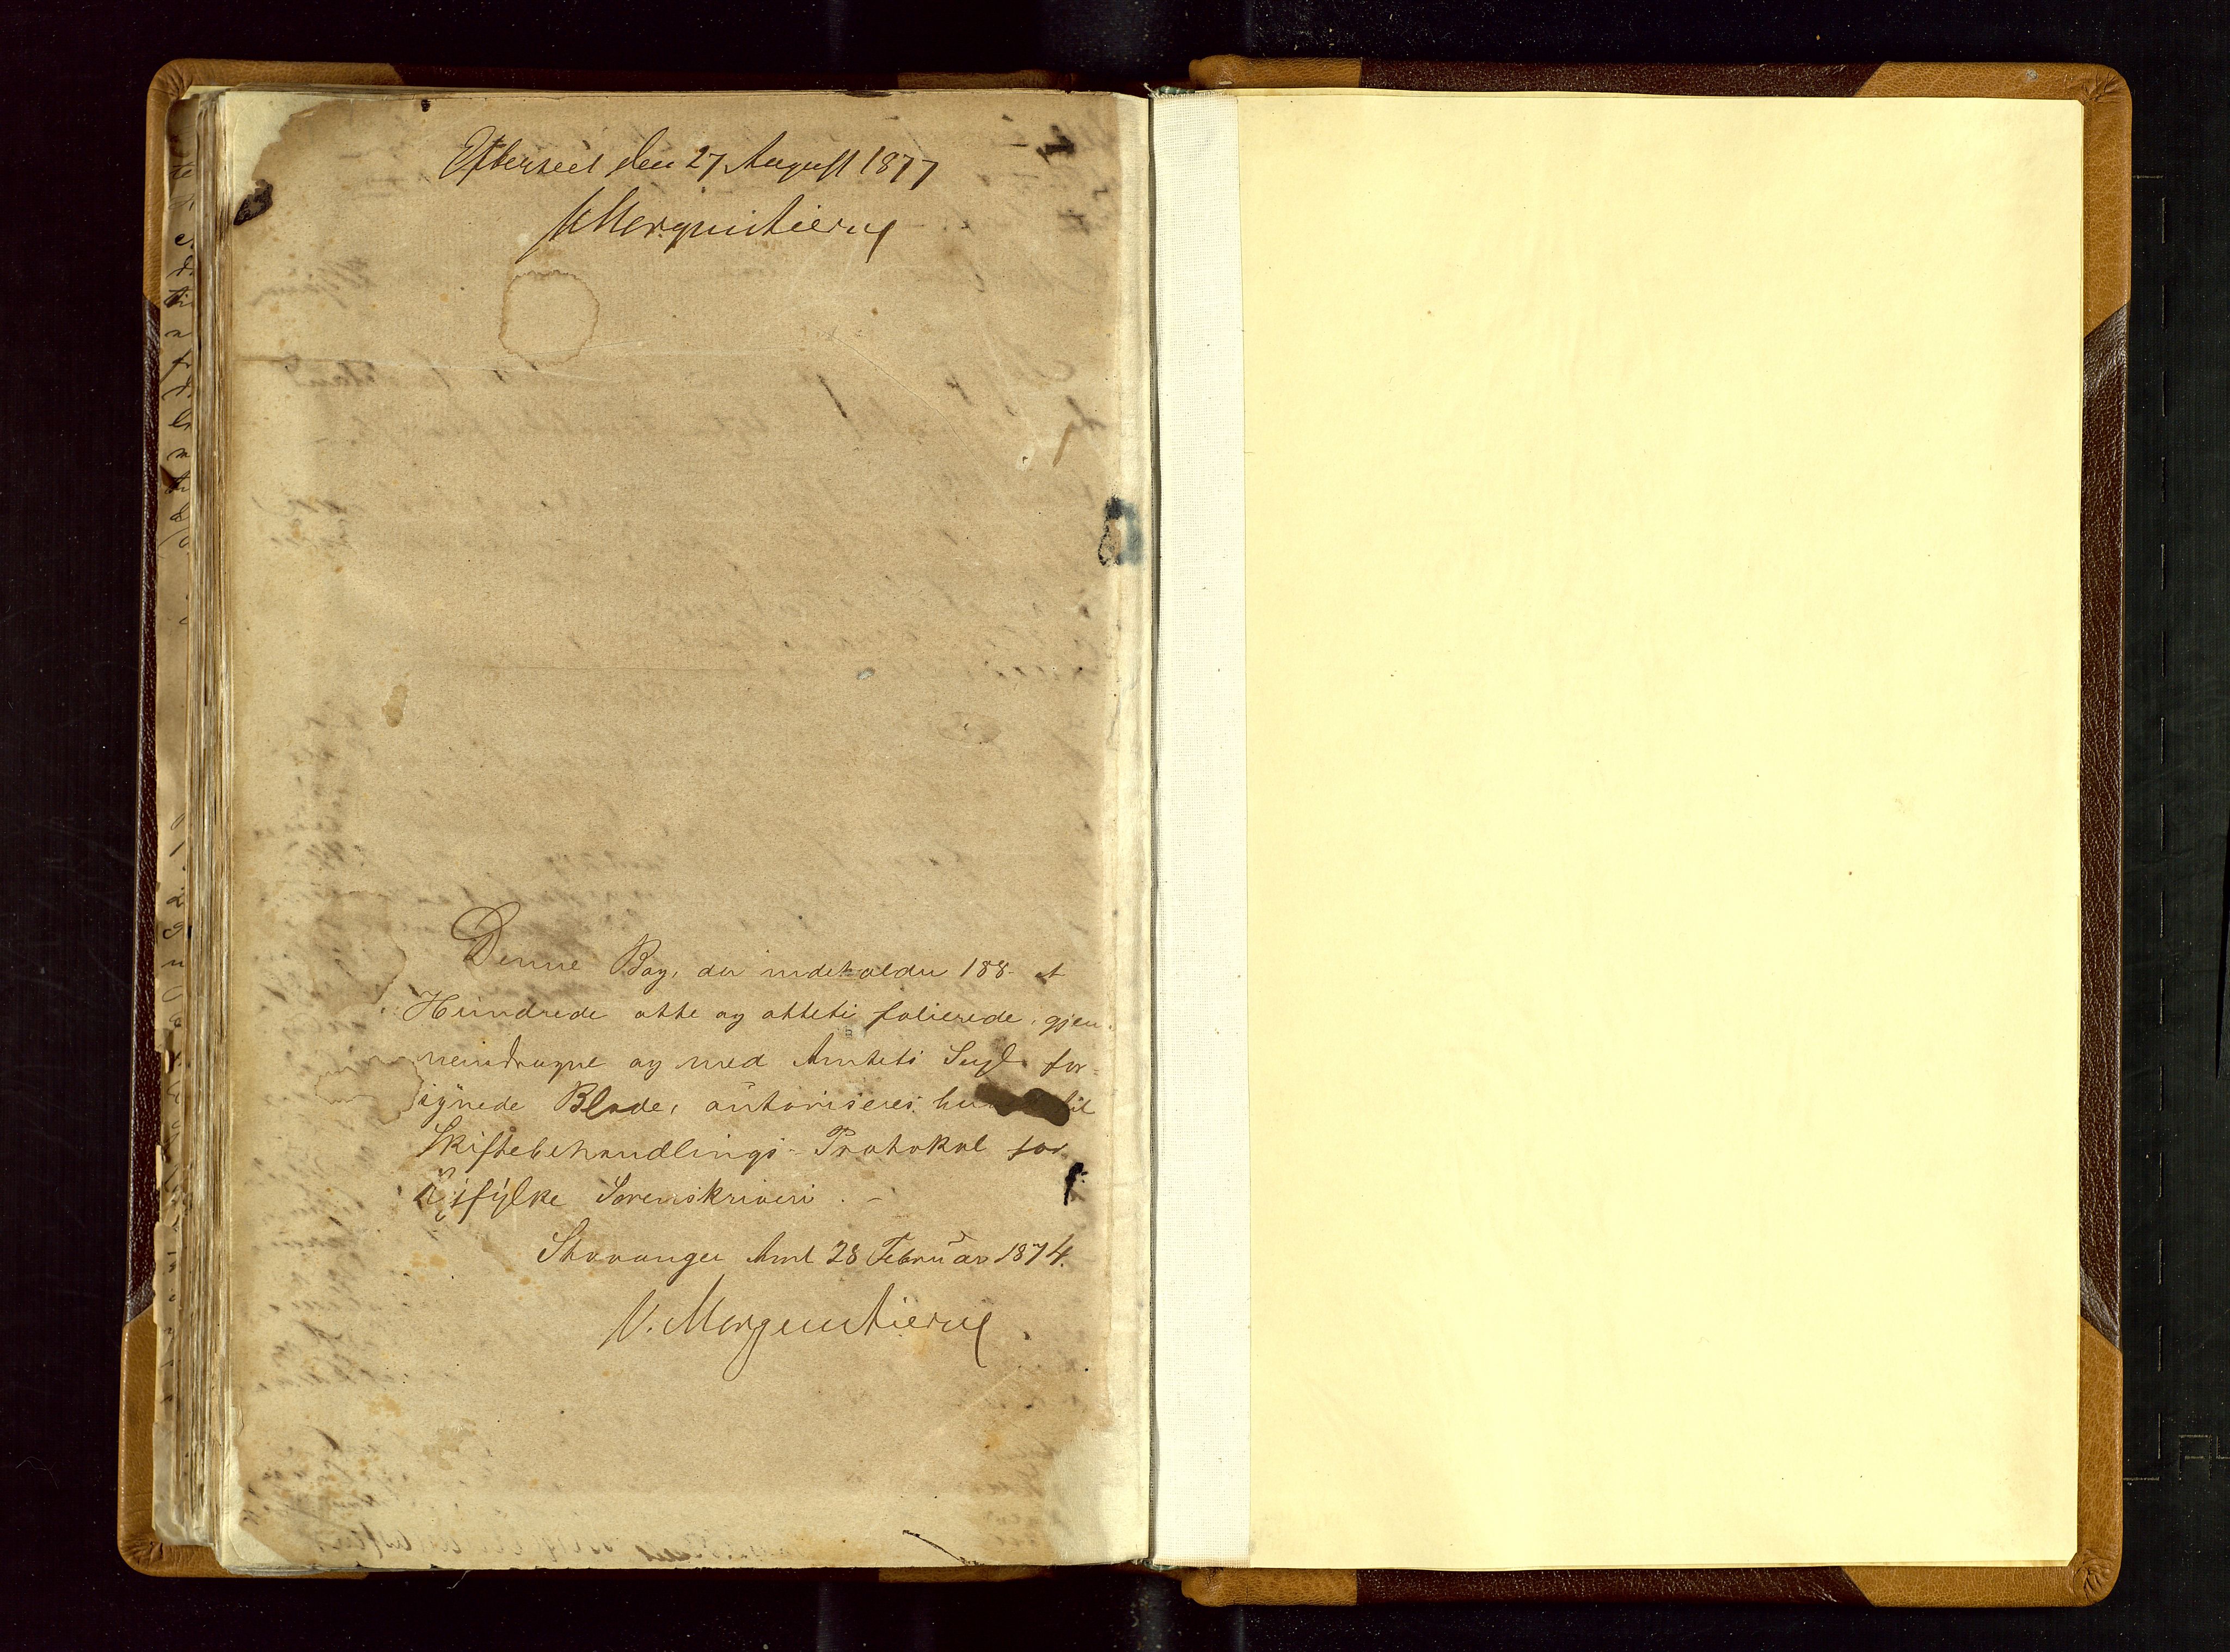 Efterseet den 27 August 1877
Morgenstierne
Denne Bog, der indeholder 188 - et
Hundrede otte og otteti folierede, gjen-
nemdragne og med Amtets Segl for-
synede Blade, autoriseres til
Skiftebehandlings-Protokol for
Ryfylke Sorenskriveri. -
Stavanger Amt 28 Februar 1874.
V. Morgenstierne